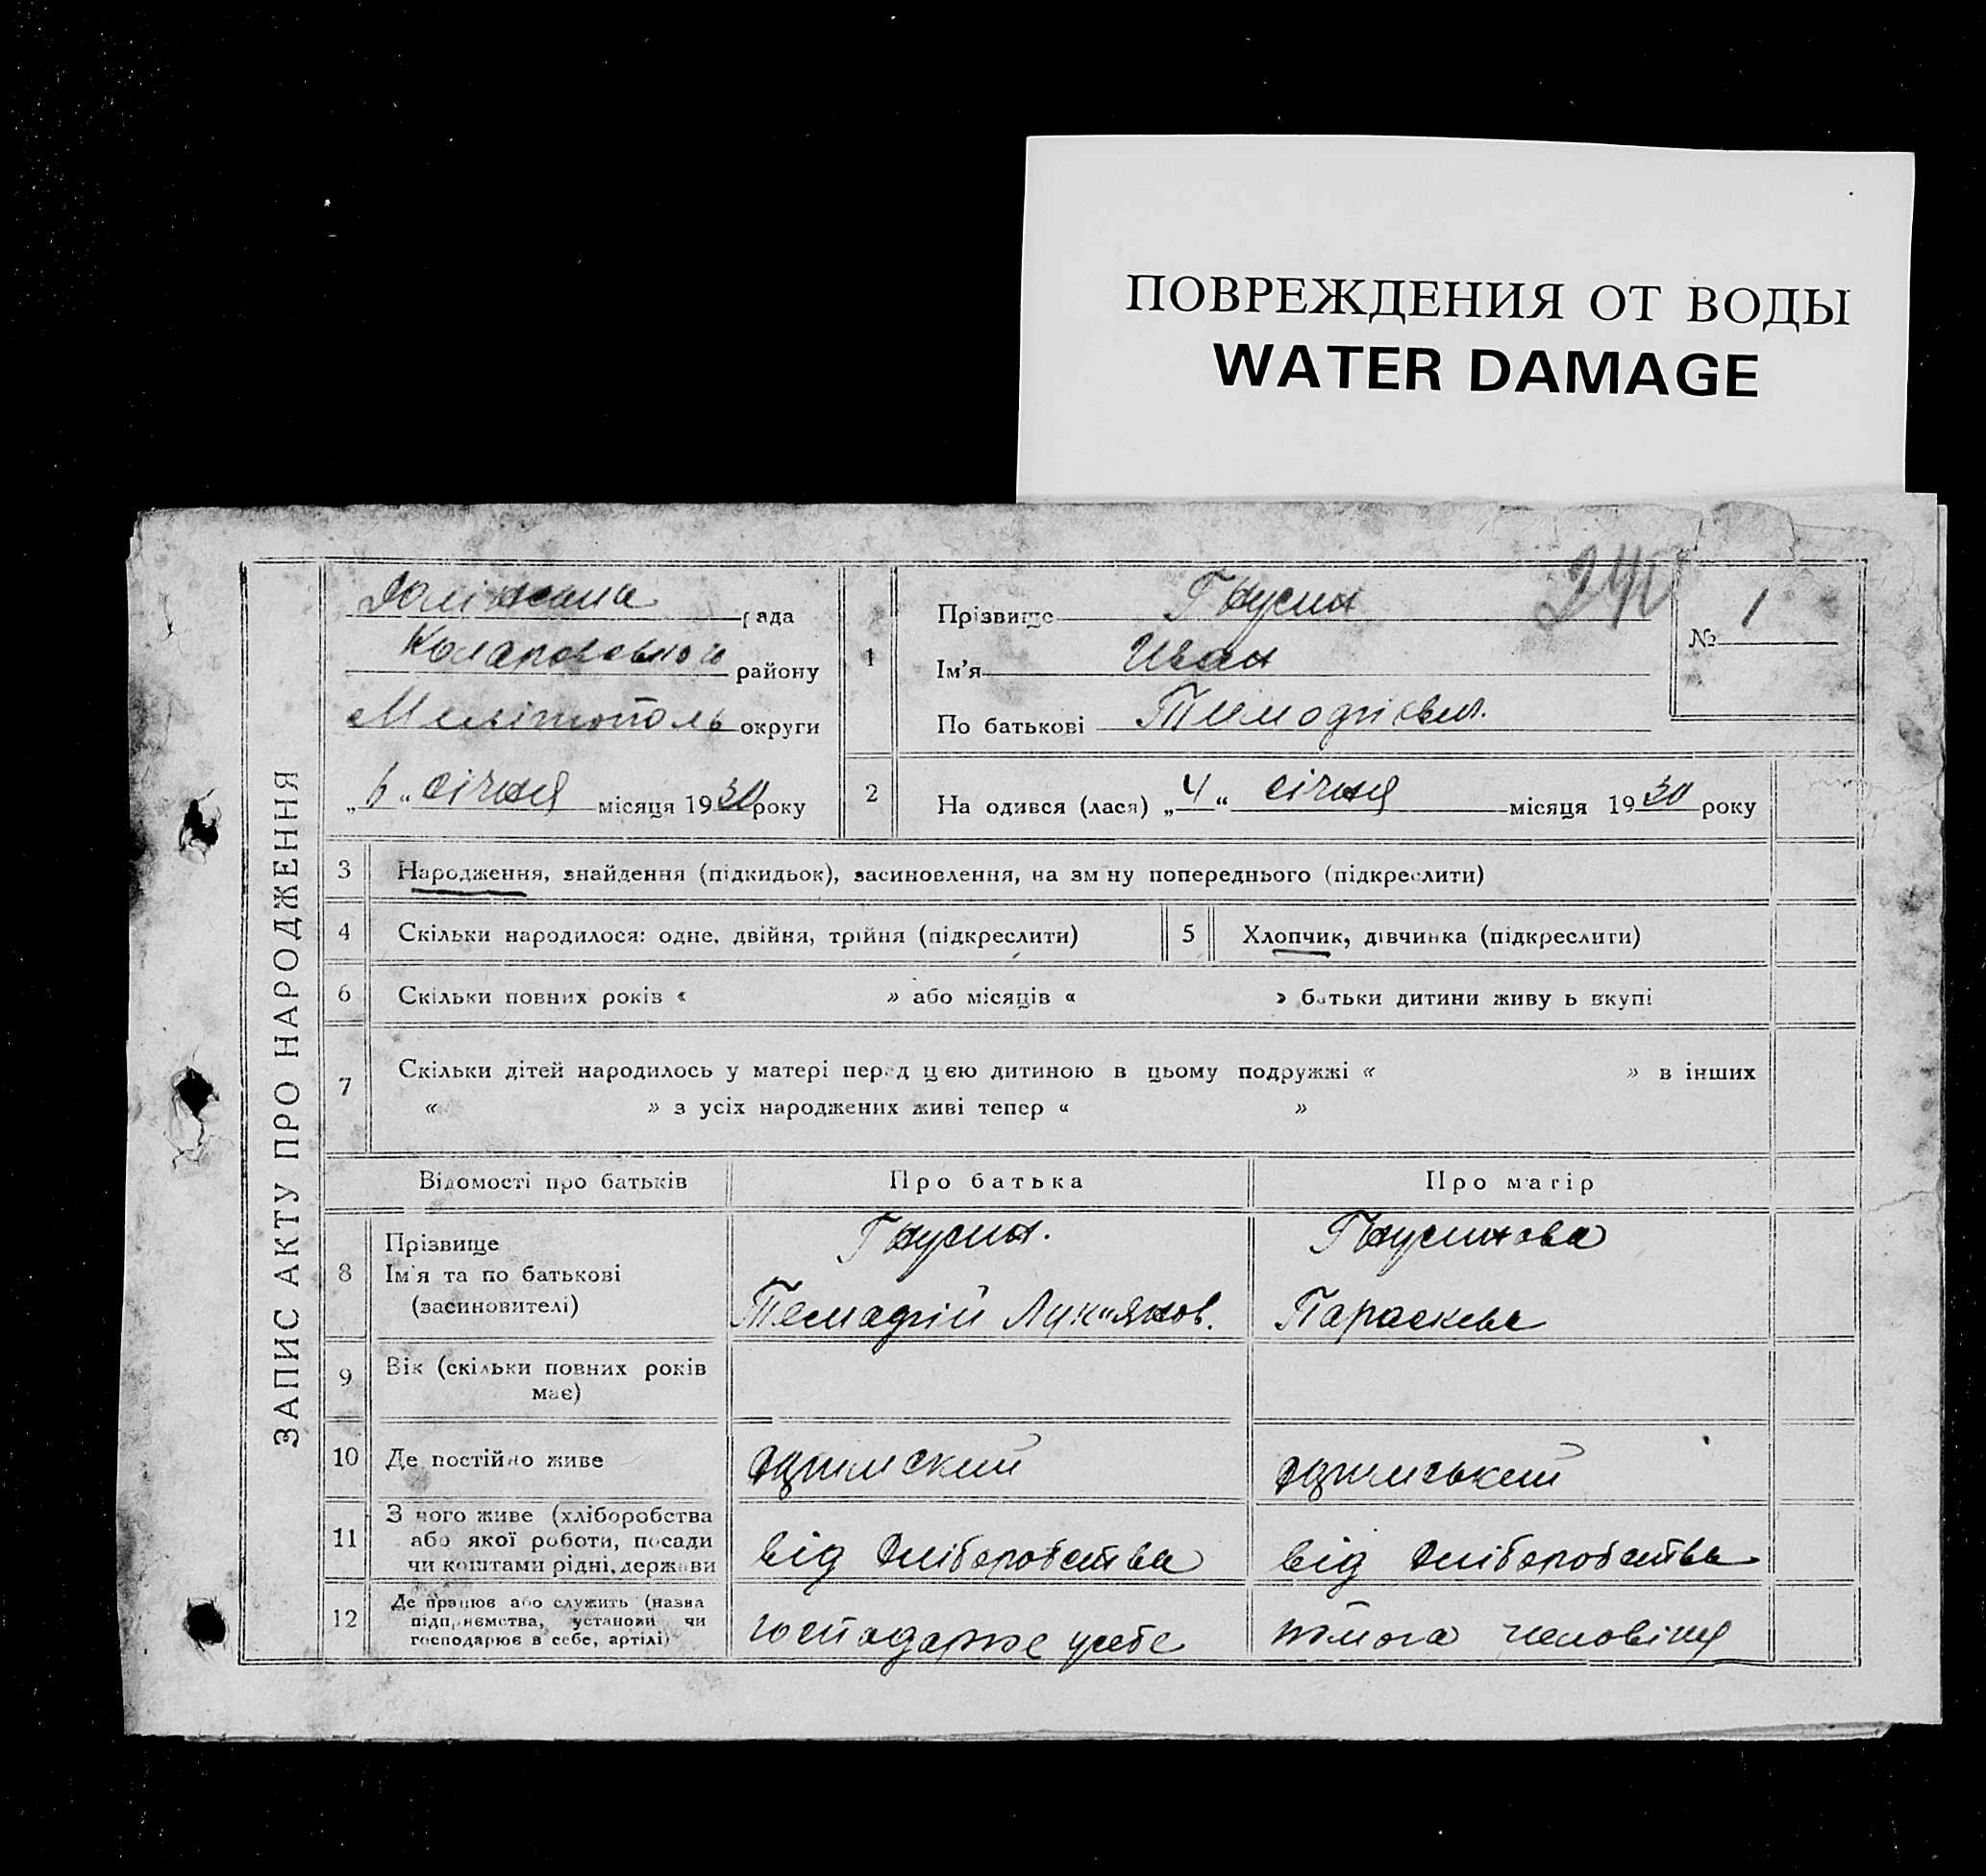 ПОВРЕЖДЕНИЯ ОТ ВОДЫ
WATER DAMAGE
ЗАПИС АКТУ ПРО НАРОДЖЕННЯ
рада
району
Мелітополь округи
„6“ січня місяця 1930 року
240
№ 1
1 Прізвище
Ім'я Иван
По батькові Тимофієвич.
2 На одився (лася) „4“ січня місяця 1930 року
3 Народження, знайдення (підкидьок), засиновлення, на зм ну попереднього (підкреслити)
4 Скільки народилося: одне, двійня, трійня (підкреслити) 5 Хлопчик, дівчинка (підкреслити)
6 Скільки повних років « » або місяців « » батьки дитини живу ь вкупі
7 Скільки дітей народилось у матері перед цією дитиною в цьому подружжі « » в інших
« » з усіх народжених живі тепер « »
Відомості про батьків Про батька Про матір
8 Прізвище
Ім'я та по батькові
(засиновителі)
Лук"янов. Параскева
9 Вік (скільки повних років
має)
10 Де постійно живе
11 З чого живе (хліборобства
або якої роботи, посади
чи коштами рідні, держави
від хліборобства від хліборобства
12 Де працює або служить (назва
підприємства, установи чи
господарює в себе, артілі)
господарює усебе